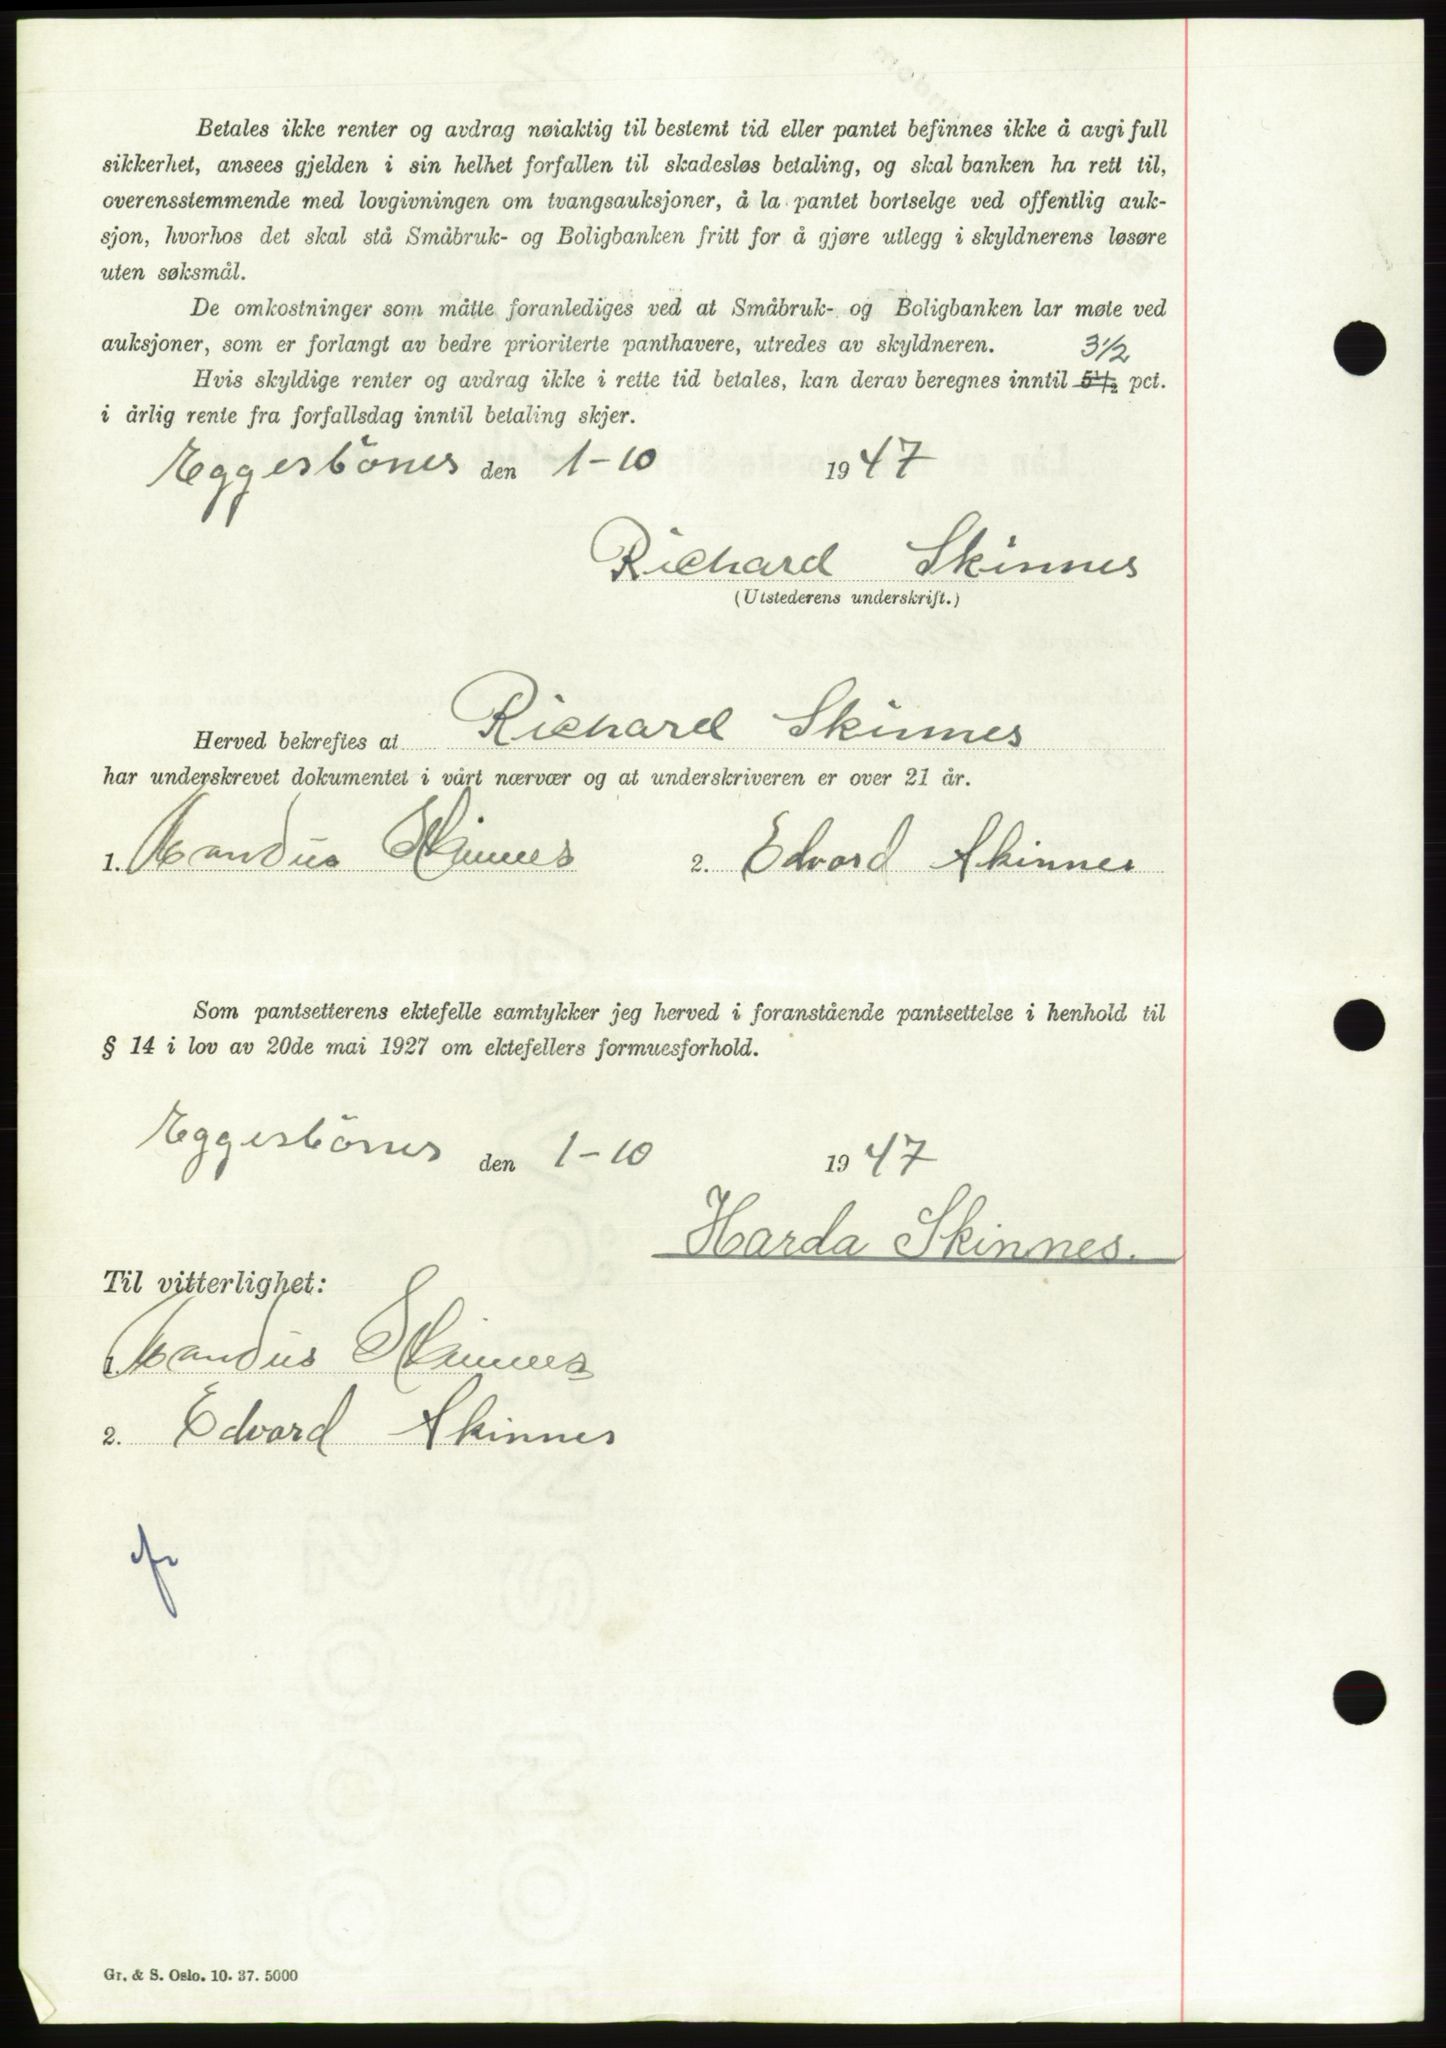 Betales ikke renter og avdrag nøiaktig til bestemt tid eller pantet befinnes ikke å avgi full
sikkerhet, ansees gjelden i sin helhet forfallen til skadesløs betaling, og skal banken ha rett til,
overensstemmende med lovgivningen om tvangsauksjoner, å la pantet bortselge ved offentlig auk-
sjon, hvorhos det skal stå Småbruk- og Boligbanken fritt for å gjøre utlegg i skyldnerens løsøre
uten søksmål.
De omkostninger som måtte foranlediges ved at Småbruk- og Boligbanken lar møte ved
auksjoner, som er forlangt av bedre prioriterte panthavere, utredes av skyldneren. 3 1/2
Hvis skyldige renter og avdrag ikke i rette tid betales, kan derav beregnes inntil 5 1/2 pct.
i årlig rente fra forfallsdag inntil betaling skjer.
Eggesbönes den 1-10 1947
Richard Skinnes
(Utstederens underskrift.)
Herved bekreftes at Richard Skinnes
har underskrevet dokumentet i vårt nærvær og at underskriveren er over 21 år.
1. Mandus Skinnes 2. Edvard Skinnes
Som pantsetterens ektefelle samtykker jeg herved i foranstående pantsettelse i henhold til
§ 14 i lov av 20de mai 1927 om ektefellers formuesforhold.
Eggesbönes den 1-10 1947
Harda Skinnes.
Til vitterlighet:
1. Mandus Skinnes
2. Edvard Skinnes
Gr. & S. Oslo. 10. 37. 5000